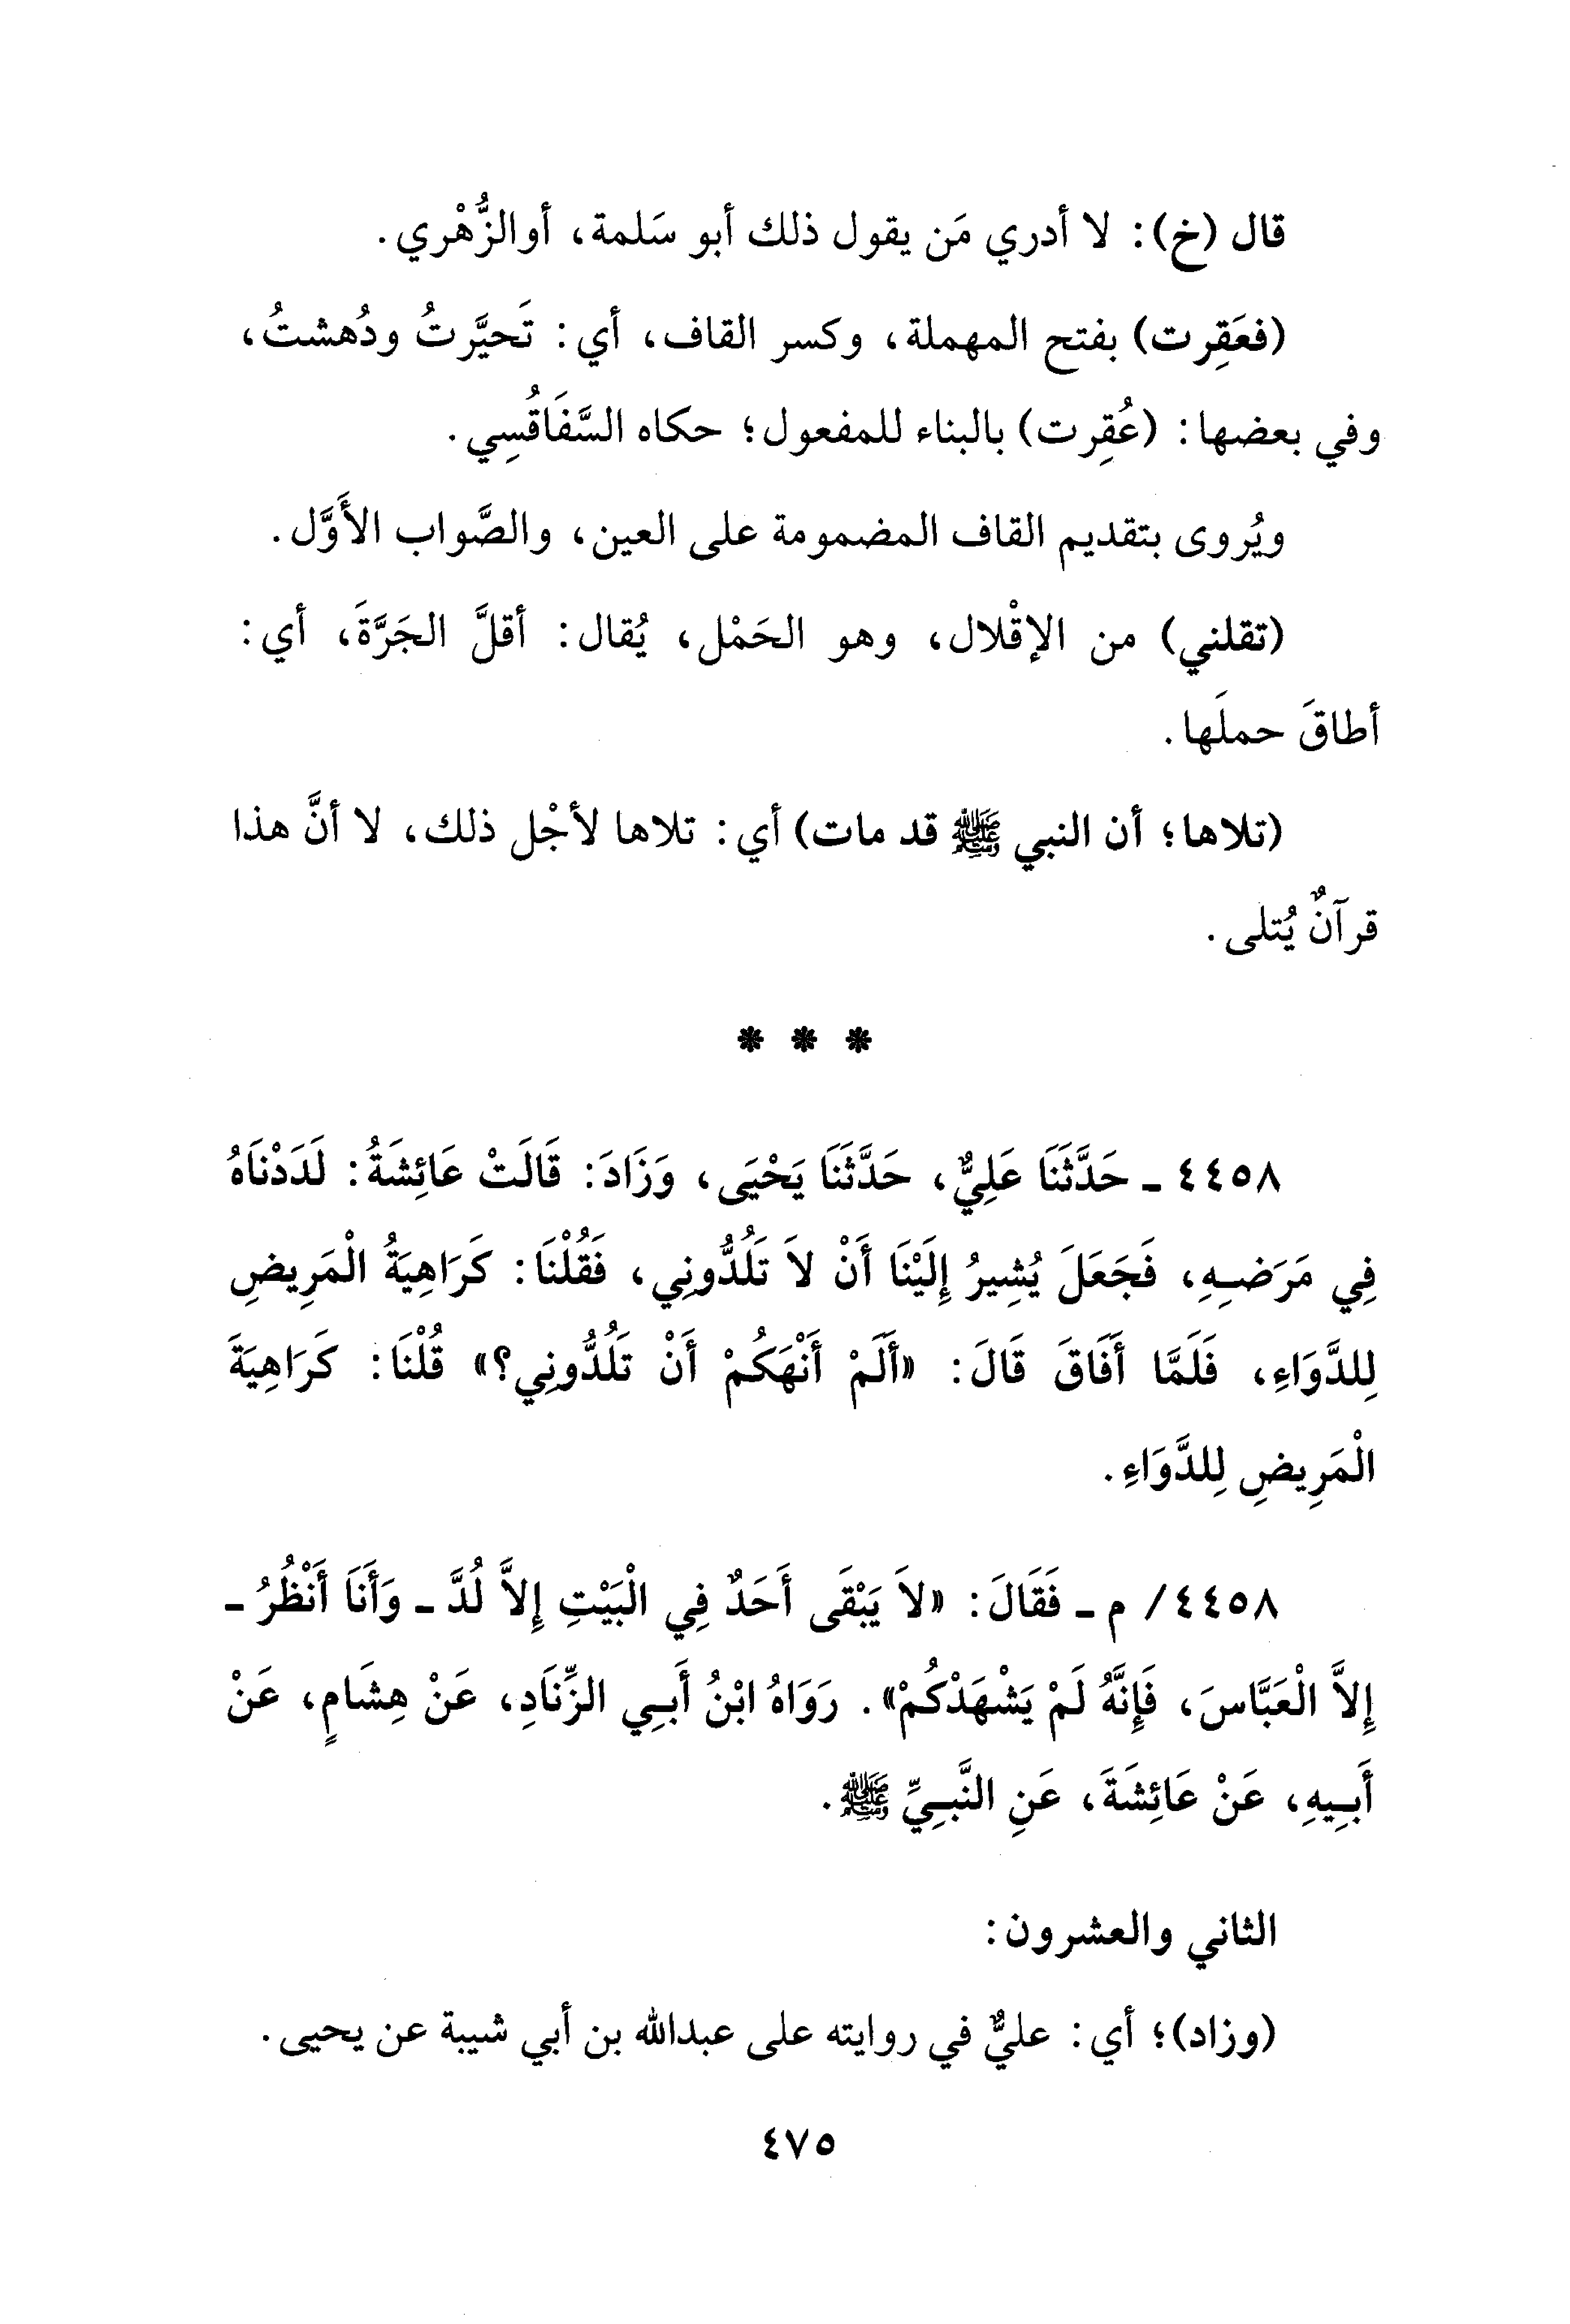 قال (خ): لا أدري مَن يقول ذلك أبو سَلمة، أوالزُّهْري.
(فعَقِرت) بفتح المهملة، وكسر القاف، أي: تَحيَّرتُ ودُهشتُ،
وفي بعضها: (عُقِرت) بالبناء للمفعول؛ حكاه السَّفَاقُسِي.
ويُروى بتقديم القاف المضمومة على العين، والصَّواب الأَوَّل.
(تقلني) من الإقْلال، وهو الحَمْل، يُقال: أقلَّ الجَرَّةَ، أي:
أطاقَ حملَها.
(تلاها؛ أن النبي ﷺ قد مات) أي: تلاها لأجْل ذلك، لا أنَّ هذا
قرآنٌ يُتلى.
* * *
٤٤٥٨ ـ حَدَّثَنَا عَلِيٌّ، حَدَّثَنَا يَحْيَى، وَزَادَ: قَالَتْ عَائِشَةُ: لَدَدْنَاهُ
فِي مَرَضِهِ، فَجَعَلَ يُشِيرُ إِلَيْنَا أَنْ لاَ تَلُدُّونِي، فَقُلْنَا: كَرَاهِيَةُ الْمَرِيضِ
لِلدَّوَاءِ، فَلَمَّا أَفَاقَ قَالَ: «أَلَمْ أَنْهَكُمْ أَنْ تَلُدُّونِي؟» قُلْنَا: كَرَاهِيَةَ
الْمَرِيضِ لِلدَّوَاءِ.
٤٤٥٨/ م ـ فَقَالَ: «لاَ يَبْقَى أَحَدٌ فِي الْبَيْتِ إِلاَّ لُدَّ ـ وَأَنَا أَنْظُرُ ـ
إِلاَّ الْعَبَّاسَ، فَإِنَّهُ لَمْ يَشْهَدْكُمْ». رَوَاهُ ابْنُ أَبِي الزِّنَادِ، عَنْ هِشَامٍ، عَنْ
أَبِيهِ، عَنْ عَائِشَةَ، عَنِ النَّبِيِّ ﷺ.
الثاني والعشرون:
(وزاد)؛ أي: عليٌّ في روايته على عبدالله بن أبي شيبة عن يحيى.
٤٧٥